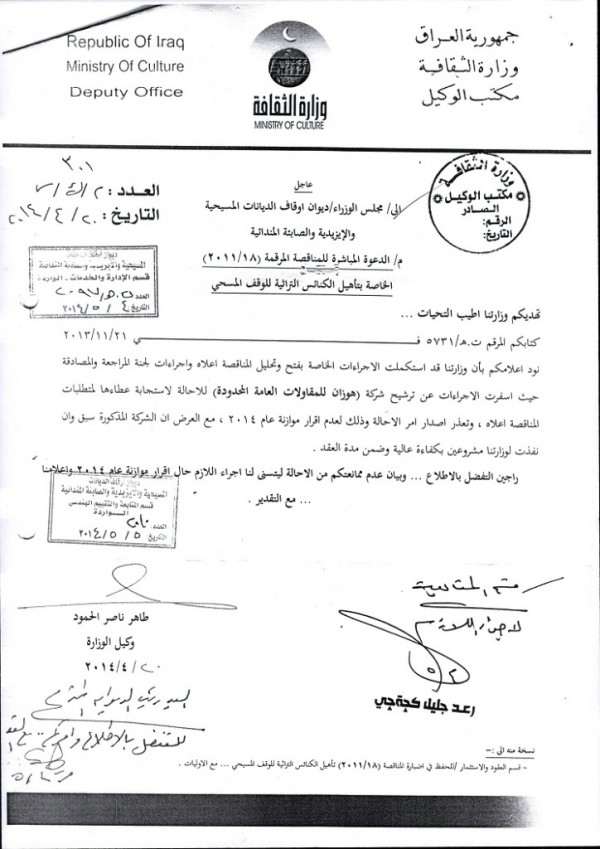 Republic Of Iraq
Ministry Of Culture
Deputy Office
وزارة الثقافة
MINISTRY OF CULTURE
جمهورية العراق
وزارة الثقافية
مكتب الوكيل
٣٠١
العدد :
التاريخ : ٢٠١٤/٤/٢٠
وزارة الثقافة
مكتب الوكيل
الصادر
الرقم:
التاريخ:
عاجل
الى/ مجلس الوزراء/ديوان اوقاف الديانات المسيحية
والإيزيدية والصابئة المندائية
م/ الدعوة المباشرة للمناقصة المرقمة (٢٠١١/١٨)
الخاصة بتأهيل الكنائس التراثية للوقف المسحي
المسيحية والايزيدية والصابئة المندائية
قسم الإدارة والخدمات - الواردة
العدد
التاريخ ٢٠١٤/٥/٤
تهديكم وزارتنا اطيب التحيات ...
كتابكم المرقم ت.هـ/٥٧٣١ فـــي ٢٠١٣/١١/٢١
نود اعلامكم بأن وزارتنا قد استكملت الاجراءات الخاصة بفتح وتحليل المناقصة اعلاه واجراءات لجنة المراجعة والمصادقة
حيث اسفرت الاجراءات عن ترشيح شركة (هوزان للمقاولات العامة المحدودة) للاحالة لاستجابة عطاءها لمتطلبات
المناقصة اعلاه ، وتعذر اصدار امر الاحالة وذلك لعدم اقرار موازنة عام ٢٠١٤ ، مع العرض ان الشركة المذكورة سبق وان
نفذت لوزارتنا مشروعين بكفاءة عالية وضمن مدة العقد .
راجين التفضل بالاطلاع ... وبيان عدم ممانعتكم من الاحالة ليتسنى لنا اجراء اللازم حال اقرار موازنة عام ٢٠١٤ واعلامنا
... مع التقدير .
المسيحية والايزيدية والصابئة المندائية
قسم المتابعة والتقييم الهندسي
الـواردة
العدد
التاريخ ٢٠١٤/٥/٥
طاهر ناصر الحمود
وكيل الوزارة
٢٠١٤/٤/٢٠
رعد جليل كجةجي
نسخة منه الى :-
- قسم العقود والاستثمار /للحفظ في اضبارة المناقصة (٢٠١١/١٨) تأهيل الكنائس التراثية للوقف المسيحي ... مع الاوليات .